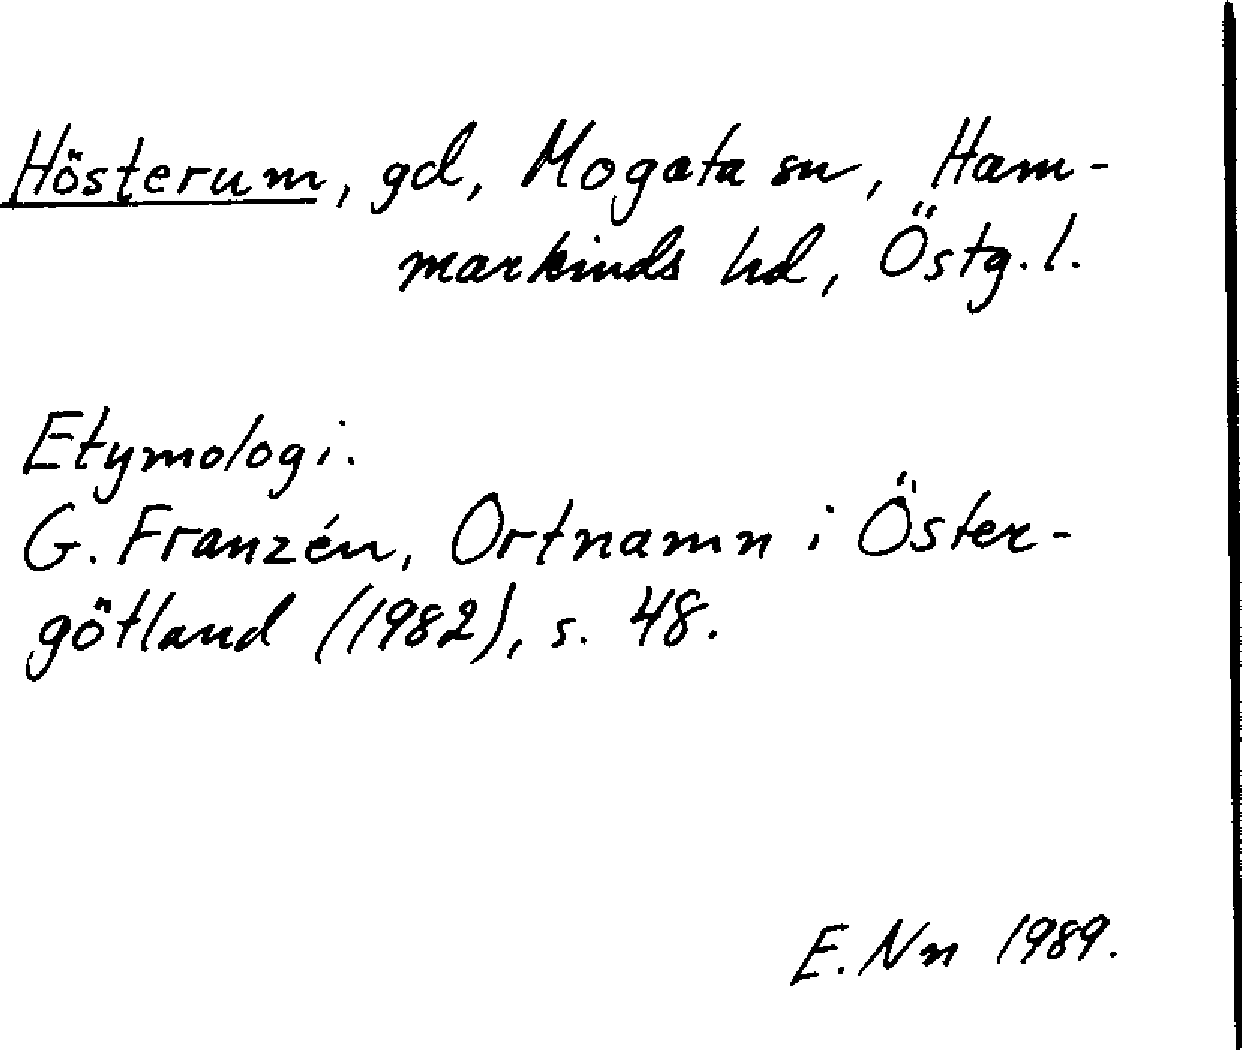 Hösterum, gd, Mogata sn, Ham-
markinds hd, Östg.l.
Etymologi.
G. Franzén, Ortnamn i Öster-
götland (1982), s. 48.
E. Nn 1989.